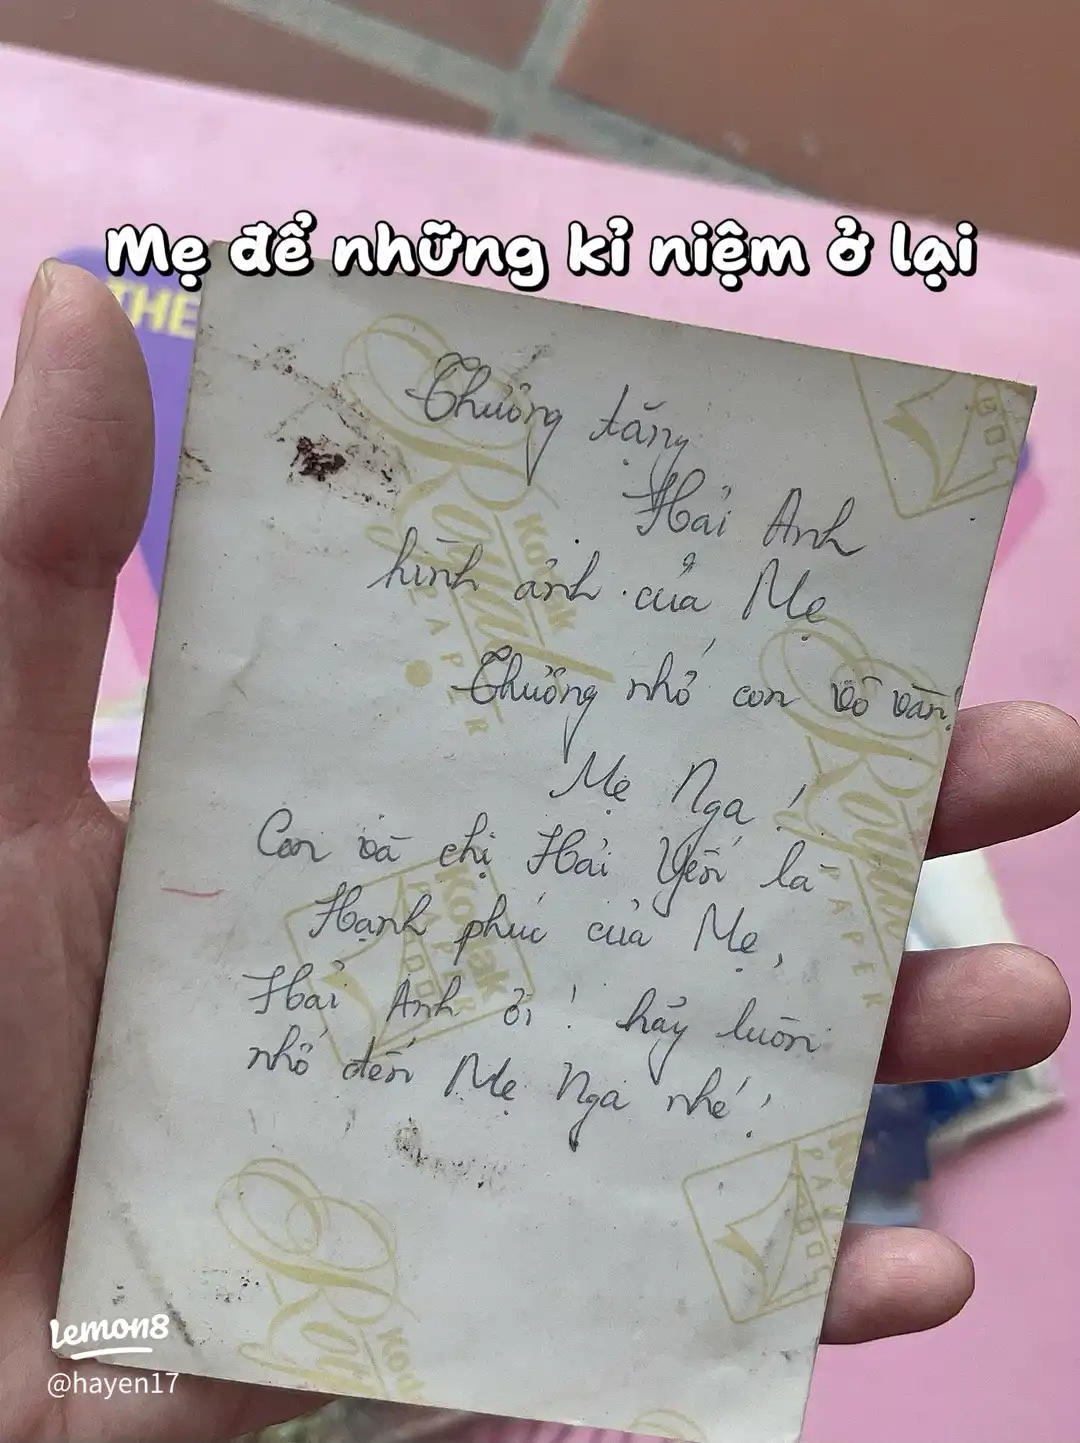 Mẹ để những kỉ niệm ở lại
THE
Thương tặng
Hải Anh
hình ảnh của Mẹ
Thương nhớ con vô vàn!
Mẹ Nga!
Con và chị Hải Yến là
Hạnh phúc của Mẹ,
Hải Anh ơi! hãy luôn
nhớ đến Mẹ Nga nhé!
Kodak
Royal
PAPER
Royal
PAPER
Kodak
PAPER
Lemon8
@hayen17